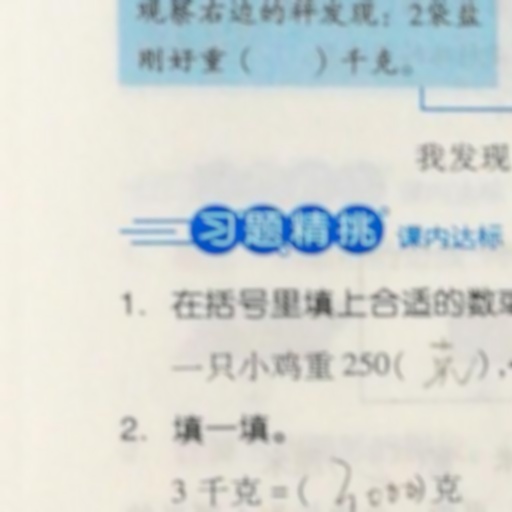 观察右边的秤发现：2袋盐
刚好重（　　）千克。
我发现
习题精挑 课内达标
1. 在括号里填上合适的数
一只小鸡重250(克),
2. 填一填。
3千克=(3000)克